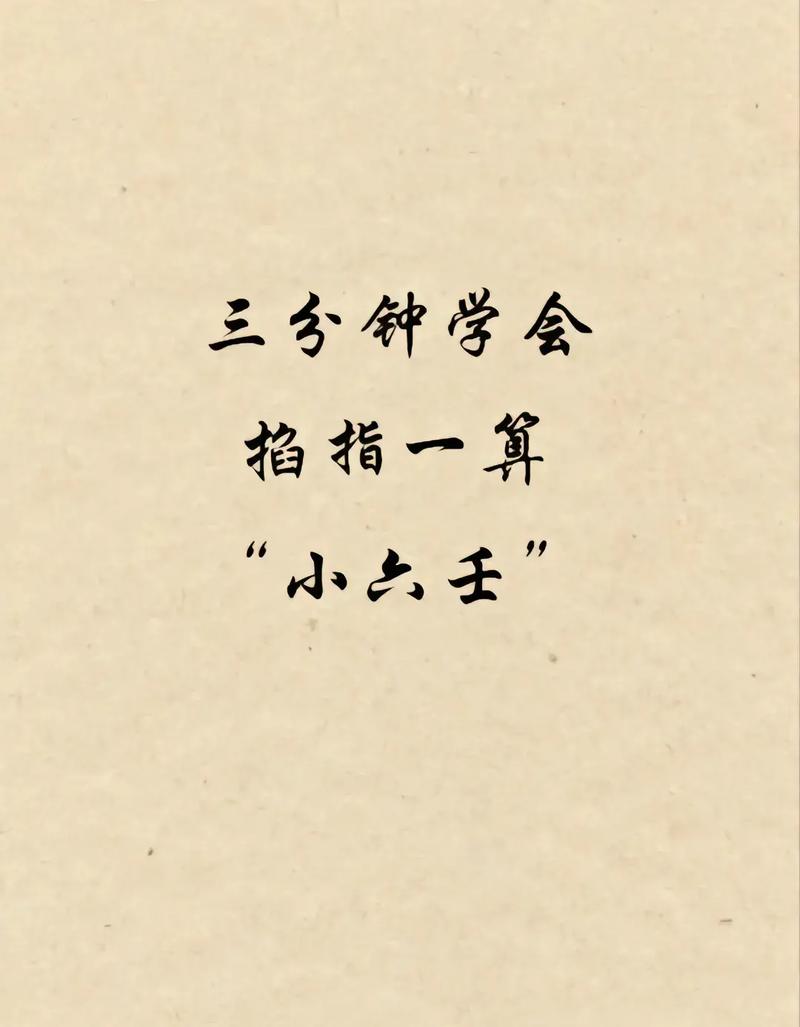 三分钟学会
掐指一算
“小六壬”